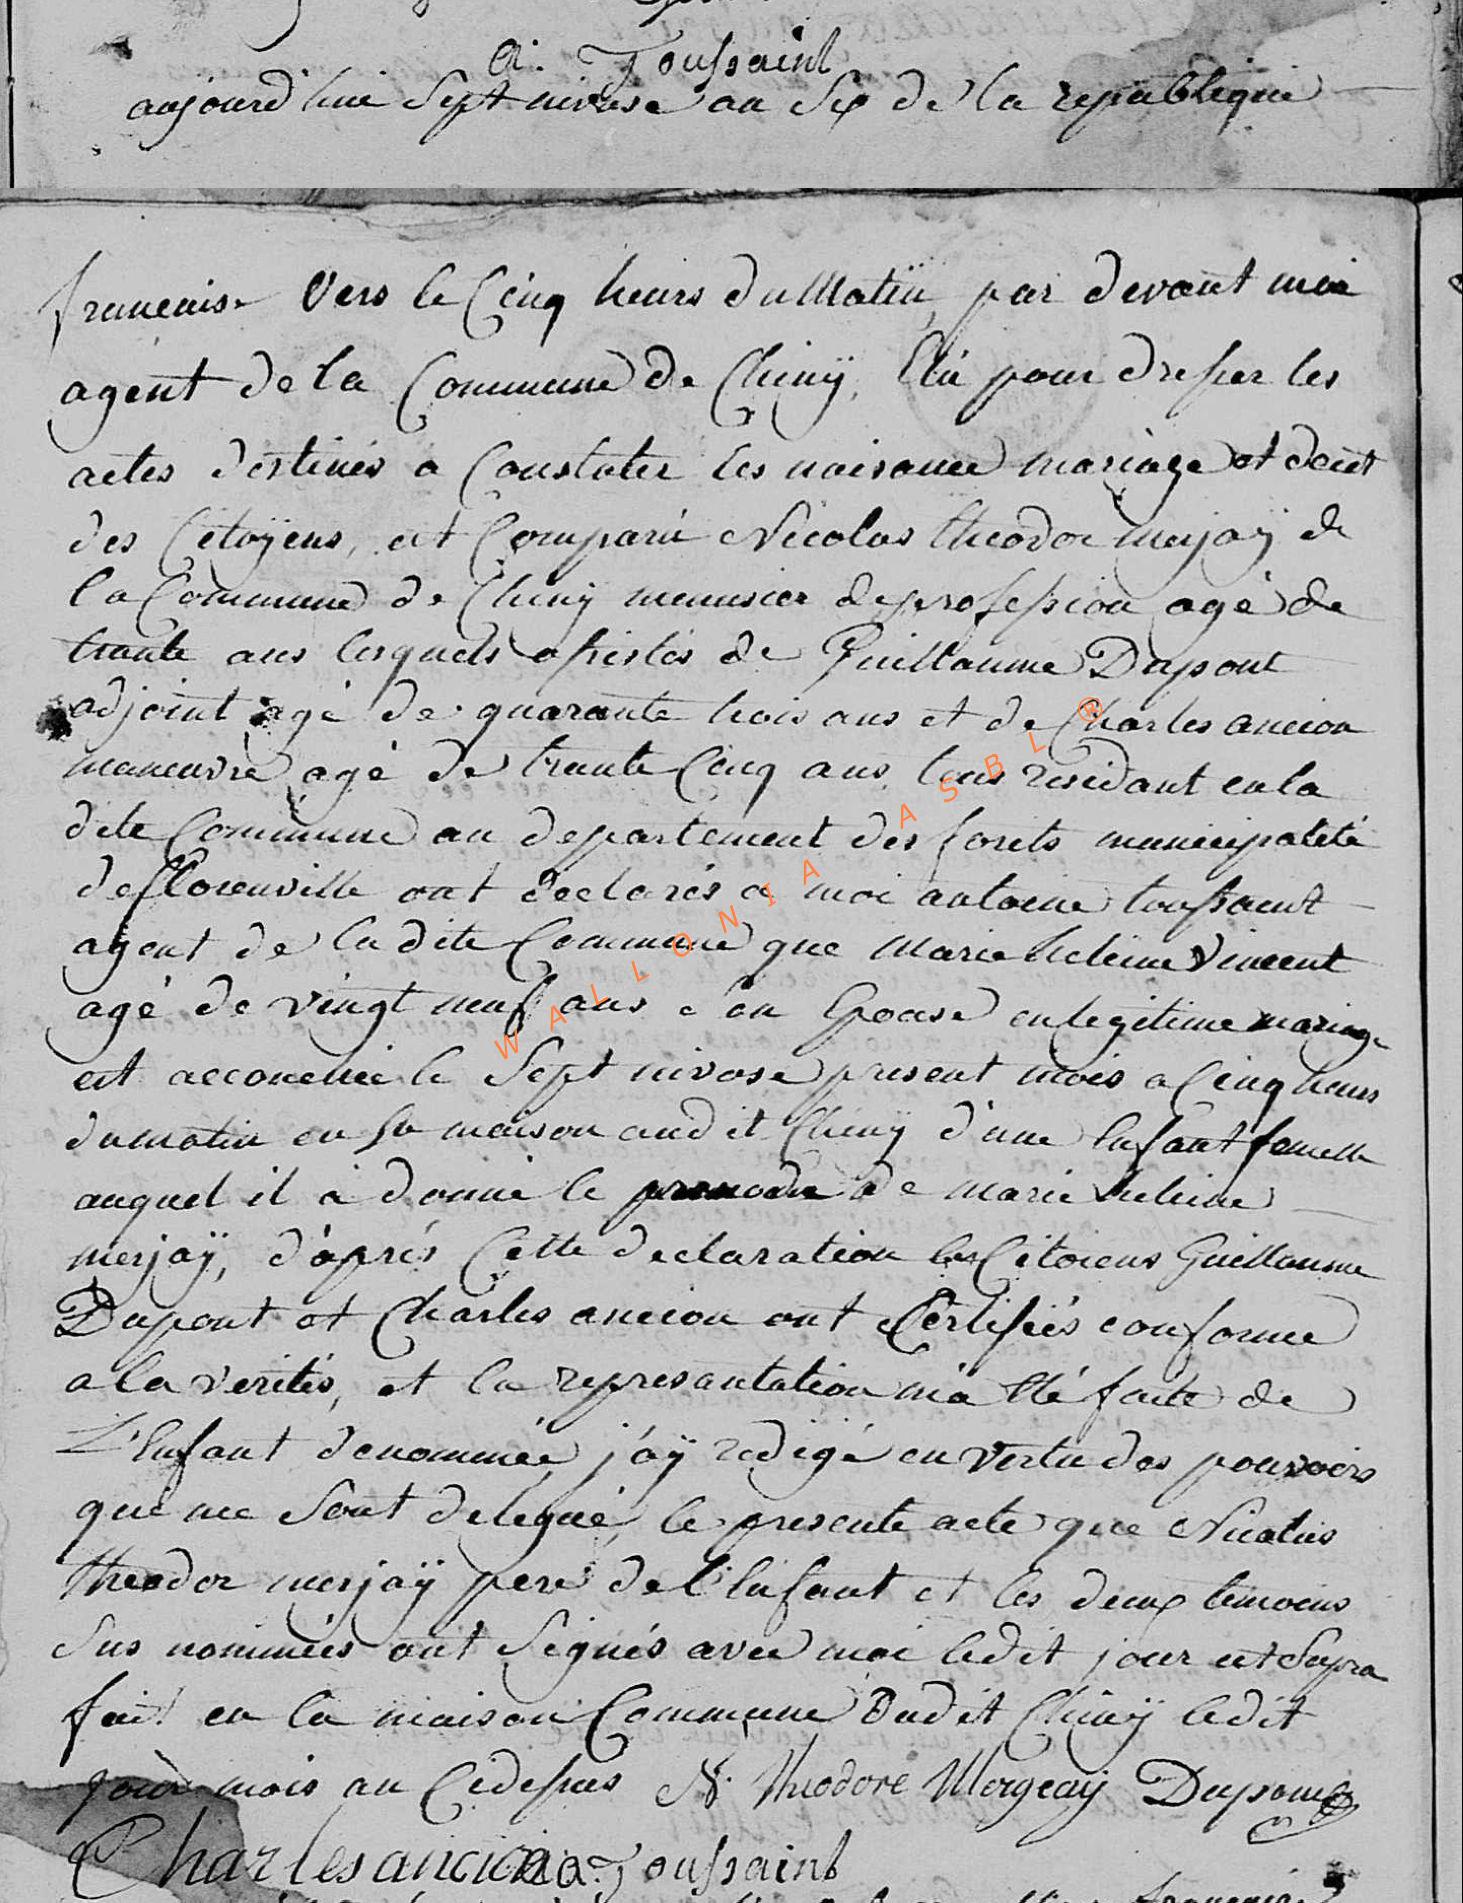 a: Toussaint
aujourd'hui Sept nivose an Six de la republique
francaise vers le Cinq heurs du Matin, par devant moi
agent de la Commune de Chinÿ, Elu pour dresser les
actes destinés a Constater les naisance mariage et decét
des Citoÿens, est Comparu Nicolas theodor merjaÿ de
la Commune de Chinÿ menusier de profession agé de
trante ans lesquels assistés de Guillaume Dupont
adjoint agé de quarante trois ans et de Charles ancion
maneuvre agé de trante Cinq ans, tous residant en la
dite Commune au departement des forets municipalité
de florenville ont declarés a moi antoine toussaint
agent de la dite Commune que marie heleine Vincent
agé de vingt neuf ans son Epouse en legitime mariage
est accouchée le Sept nivose present mois a Cinq heurs
du matin en sa maison audit Chinÿ d'une Enfant femelle
auquel il à donné le de marie heleine
merjaÿ, d'aprés Cette declaration les Citoiens Guillaume
Dupont et Charles ancion ont Certifiés conforme
a la verités, et la represantation m'a Eté faite de
L'Enfant denommée, j'aÿ redigé en vertu des pouvoirs
qui me Sont delegué, le presente acte que Nicolas
theodor merjaÿ pere de l'Enfant et les deux temoins
Sus nommées ont Signés avec moi ledit jour ut Supra
fait en la maison Commune Dudit Chinÿ ledit
jour mois an Cidessus N. Theodore Mergeaÿ Dupont
Charles ancion a: Toussaint
WALLONIA ASBL ®